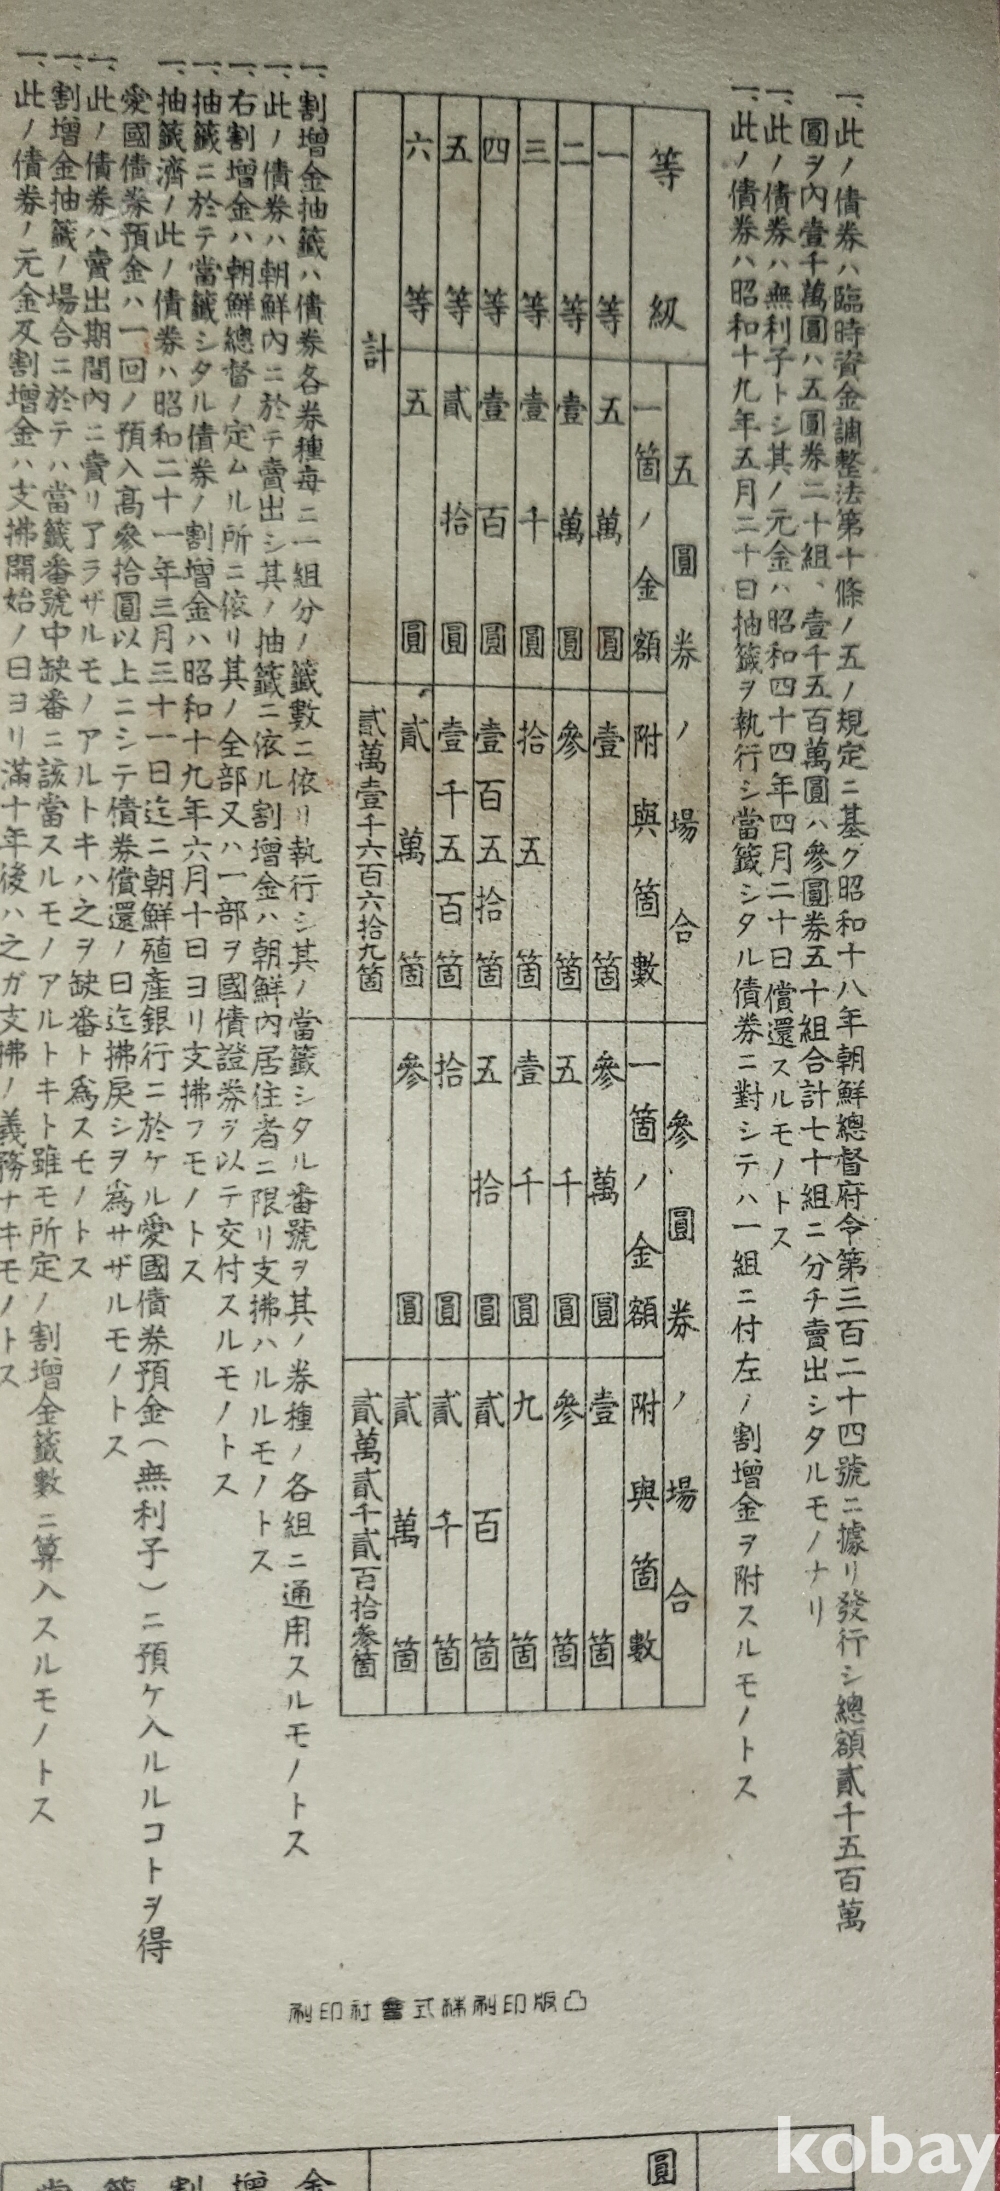 一、此ノ債券ハ臨時資金調整法第十條ノ五ノ規定ニ基グ昭和十八年朝鮮總督府令第三百二十四號ニ據リ發行シ總額貳千五百萬
圓ヲ內壹千萬圓ハ五圓券二十組、壹千五百萬圓ハ參圓券五十組合計七十組ニ分チ賣出シタルモノナリ
一、此ノ債券ハ無利子トシ其ノ元金ハ昭和四十四年四月二十日償還スルモノトス
一、此ノ債券ハ昭和十九年五月二十日抽籤ヲ執行シ當籤シタル債券ニ對シテハ一組ニ付左ノ割增金ヲ附スルモノトス
等級
五圓券ノ場合
參圓券ノ場合
一箇ノ金額
附與箇數
一箇ノ金額
附與箇數
一等 五萬圓 壹箇 參萬圓 壹箇
二等 壹萬圓 參箇 五千圓 參箇
三等 壹千圓 拾五箇 壹千圓 九箇
四等 壹百圓 壹百五拾箇 五拾圓 貳百箇
五等 貳拾圓 壹千五百箇 拾圓 貳千箇
六等 五圓 貳萬箇 參圓 貳萬箇
計 貳萬壹千六百六拾九箇 貳萬貳千貳百拾參箇
一、割增金抽籤ハ債券各券種每ニ一組分ノ籤數ニ依リ執行シ其ノ當籤シタル番號ヲ其ノ券種ノ各組ニ通用スルモノトス
一、此ノ債券ハ朝鮮內ニ於テ賣出シ其ノ抽籤ニ依ル割增金ハ朝鮮內居住者ニ限リ支拂ハルルモノトス
一、右割增金ハ朝鮮總督ノ定ムル所ニ依リ其ノ全部又ハ一部ヲ國債證券ヲ以テ交付スルモノトス
一、抽籤ニ於テ當籤シタル債券ノ割增金ハ昭和十九年六月十日ヨリ支拂フモノトス
一、抽籤濟ノ此ノ債券ハ昭和二十一年三月三十一日迄ニ朝鮮殖產銀行ニ於ケル愛國債券預金（無利子）ニ預ケ入ルルコトヲ得
愛國債券預金ハ一回ノ預入高參拾圓以上ニシテ債券償還ノ日迄拂戾シヲ爲サザルモノトス
一、此ノ債券ハ賣出期間內ニ賣リ了ラザルモノアルトキハ之ヲ缺番ト爲スモノトス
一、割增金抽籤ノ場合ニ於テハ當籤番號中缺番ニ該當スルモノアルトキト雖モ所定ノ割增金籤數ニ算入スルモノトス
一、此ノ債券ノ元金及割增金ハ支拂開始ノ日ヨリ滿十年後ハ之ガ支拂ノ義務ナキモノトス
刷印社會式株刷印版凸
圓
籤割增金
kobay